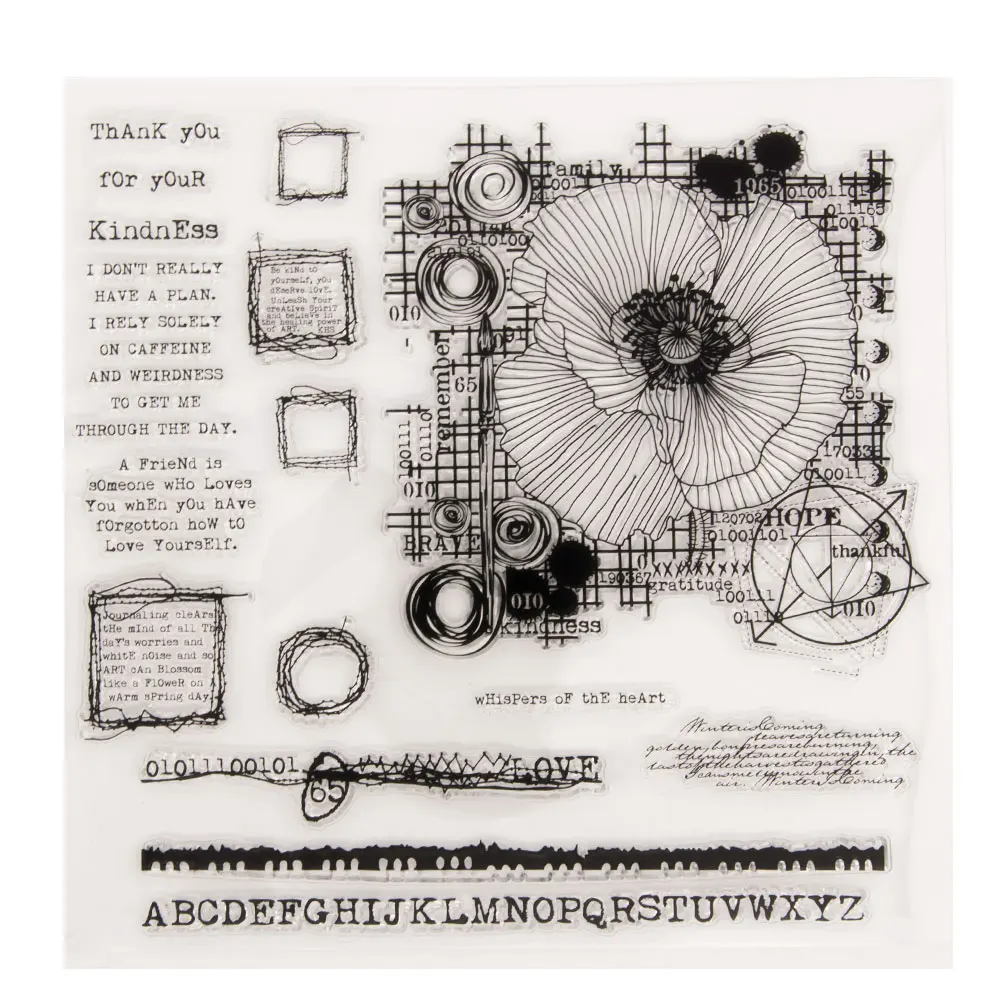 ThAnK yOu
fOr yOuR
KindnEss
I DON'T REALLY
HAVE A PLAN.
I RELY SOLELY
ON CAFFEINE
AND WEIRDNESS
TO GET ME
THROUGH THE DAY.
A FrieNd is
sOmeone wHo Loves
You whEn yOu hAve
fOrgotton hoW tO
Love YoursElf.
Be kiNd to
yOurseLf, yOu
dEseRve lOvE.
UnLeasH Your
creAtive SpiriT
and beLieVe in
the healing power
of ART. KHS
JoUrnaling cleArs
tHe mInd of all Th
daY's worries and
whitE nOise and so
ART cAn Blossom
like a FlOweR on A
wArm sPring dAy.
family
1965
010011011
011165
010011
0110100
010
091
65
remember
010111
01110
010
55
17033
010011
BRAVE
120702
HOPE
01001101
thankful
190367
xxxxxxxx
gratitude
100111
0111
010
010
kindness
wHisPers oF thE heArt
Winter is Coming
leaves are turning
golden, bonfires are burning,
the nights are drawing in, the
last of the harvest is gathered
air. Winter is Coming.
01011100101
65
LOVE
ABCDEFGHIJKLMNOPQRSTUVWXYZ